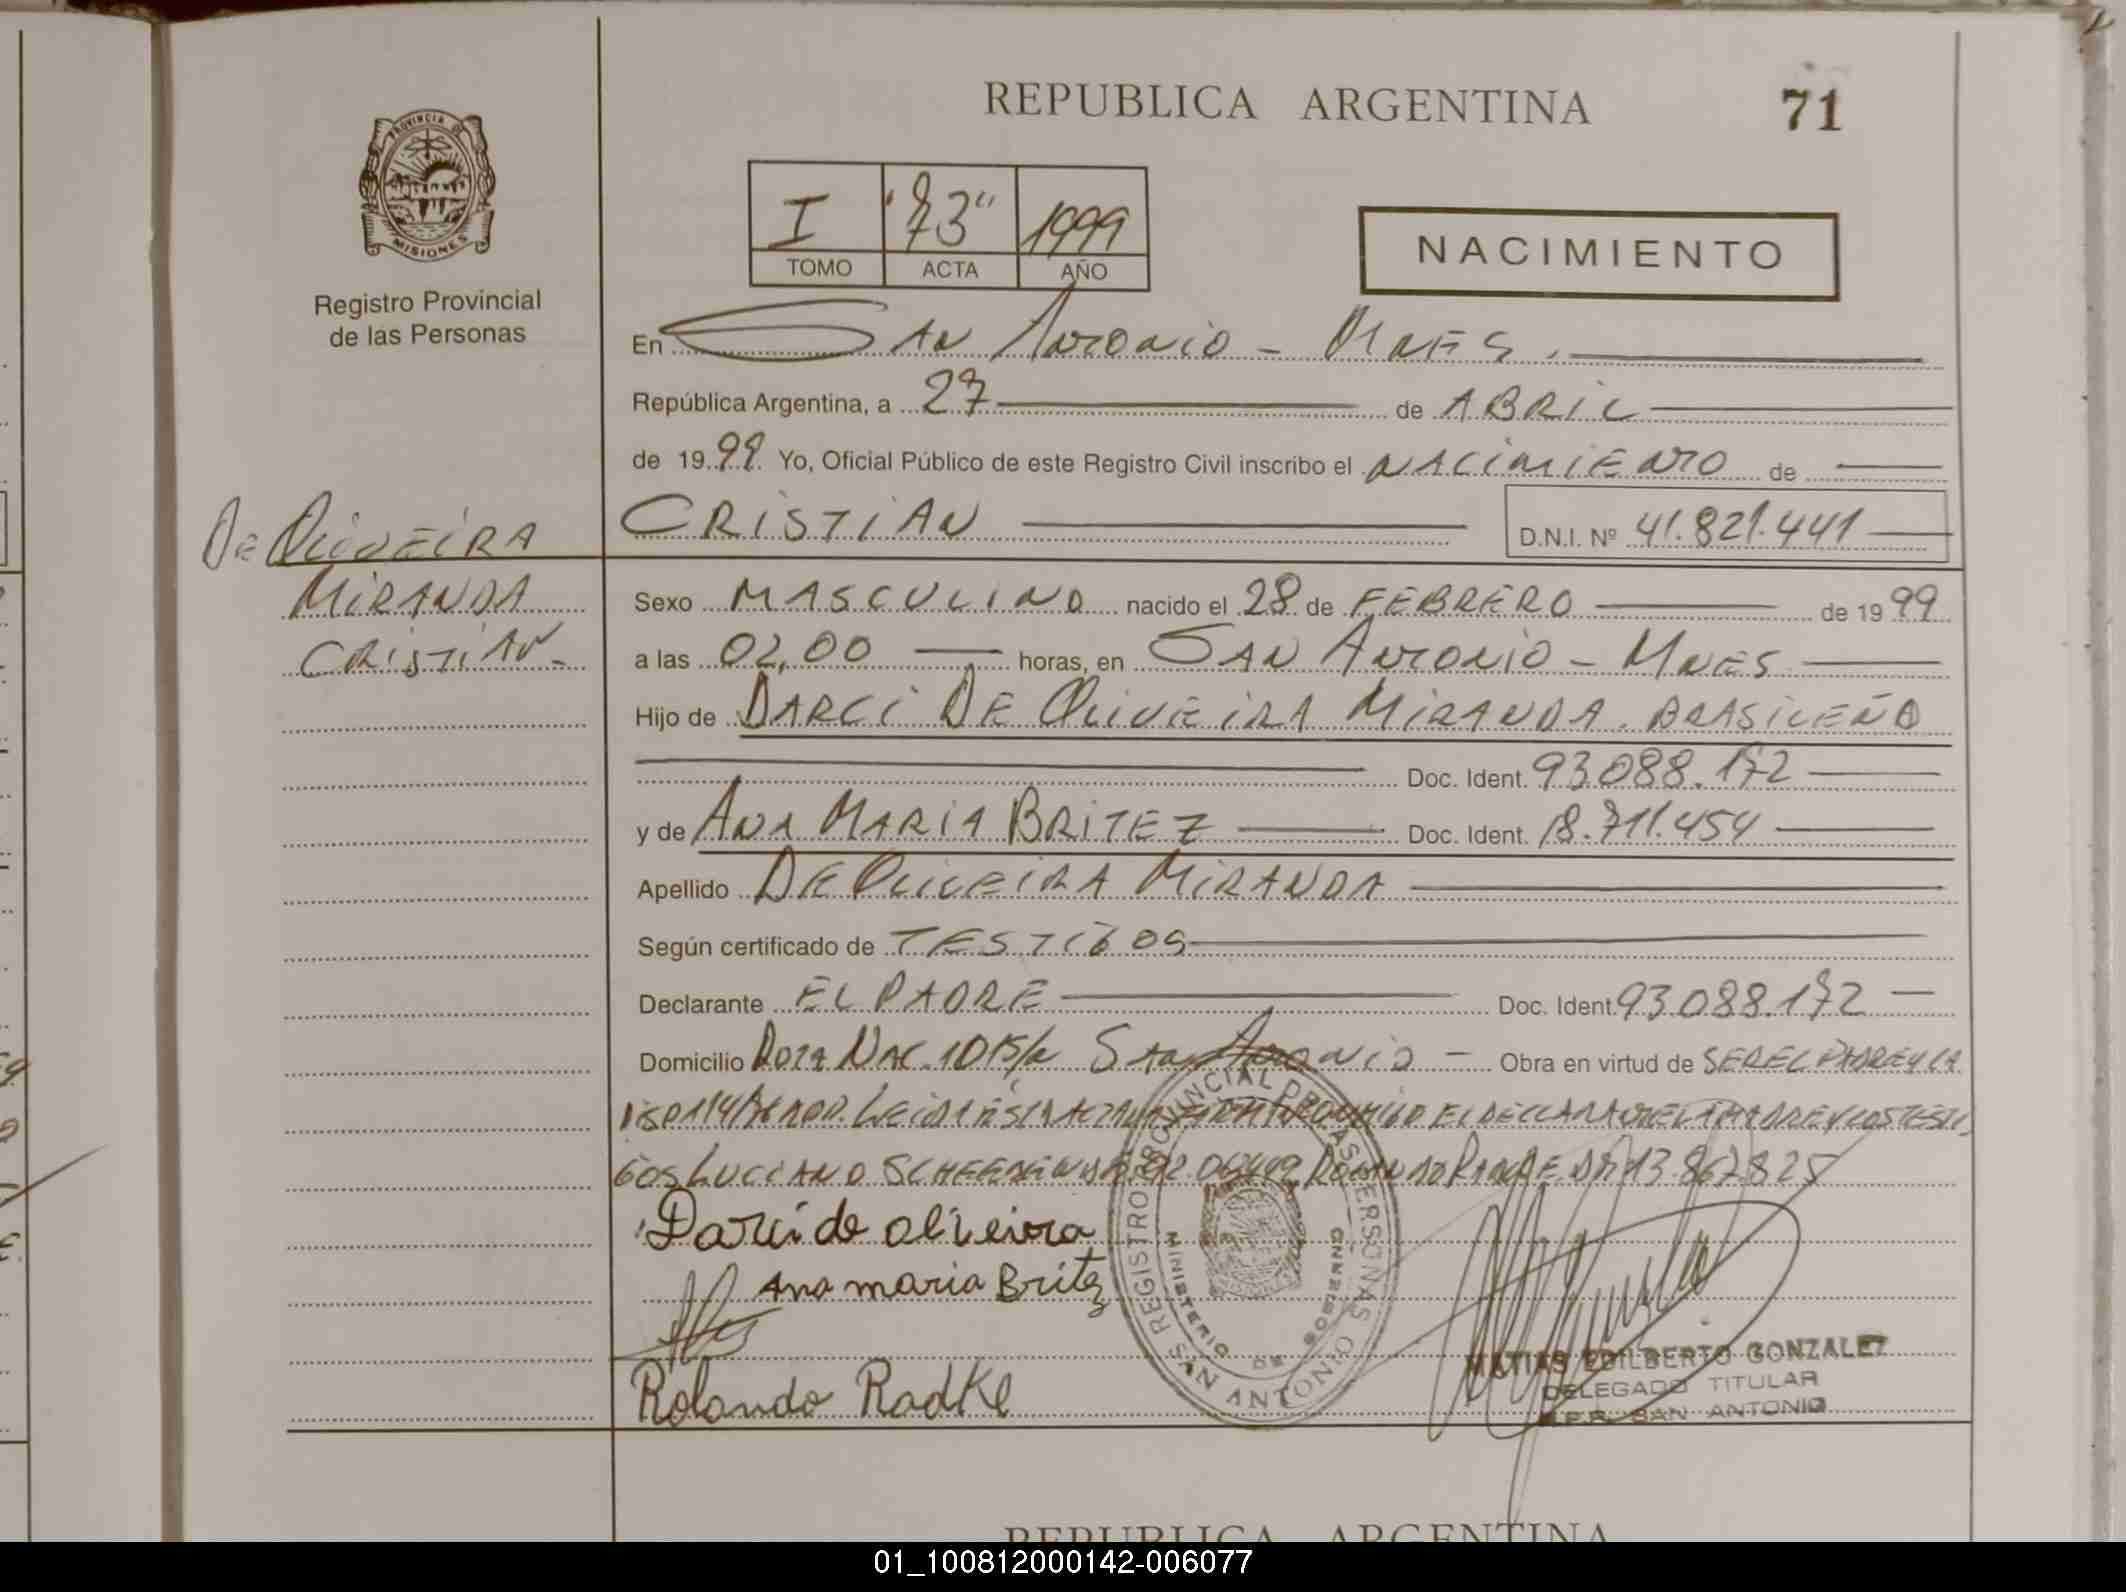 REPUBLICA ARGENTINA
71
PROVINCIA DE
MISIONES
Registro Provincial
de las Personas
I "73" 1999
TOMO ACTA AÑO
NACIMIENTO
En SAN ANTONIO - MNES.
República Argentina, a 27 de ABRIL
de 1999 Yo, Oficial Público de este Registro Civil inscribo el NACIMIENTO de
CRISTIAN D.N.I. Nº 41.821.441
DE OLIVEIRA
MIRANDA
CRISTIAN-
Sexo MASCULINO nacido el 28 de FEBRERO de 1999
a las 02,00 horas, en SAN ANTONIO - MNES
Hijo de DARCI DE OLIVEIRA MIRANDA. BRASILEÑO
Doc. Ident. 93.088.172
y de ANA MARIA BRITEZ Doc. Ident. 18.711.454
Apellido DE OLIVEIRA MIRANDA
Según certificado de TESTIGOS
Declarante EL PADRE Doc. Ident. 93.088.172
Domicilio RUTA NAC. 101 S/N SAN ANTONIO - Obra en virtud de SER EL PADRE Y LA
LEIDA ESTA ACTA EL DECLARANTE LA MADRE Y LOS TESTI
GOS LUCIANO DNI 13.867.825
Darci de oliveira
Ana maria Britz
Rolando Radke
REGISTRO PROVINCIAL DE LAS PERSONAS
MINISTERIO DE GOBIERNO
SAN ANTONIO
MATIAS EDILBERTO GONZALEZ
DELEGADO TITULAR
R.P.P. SAN ANTONIO
REPUBLICA ARGENTINA
01_100812000142-006077